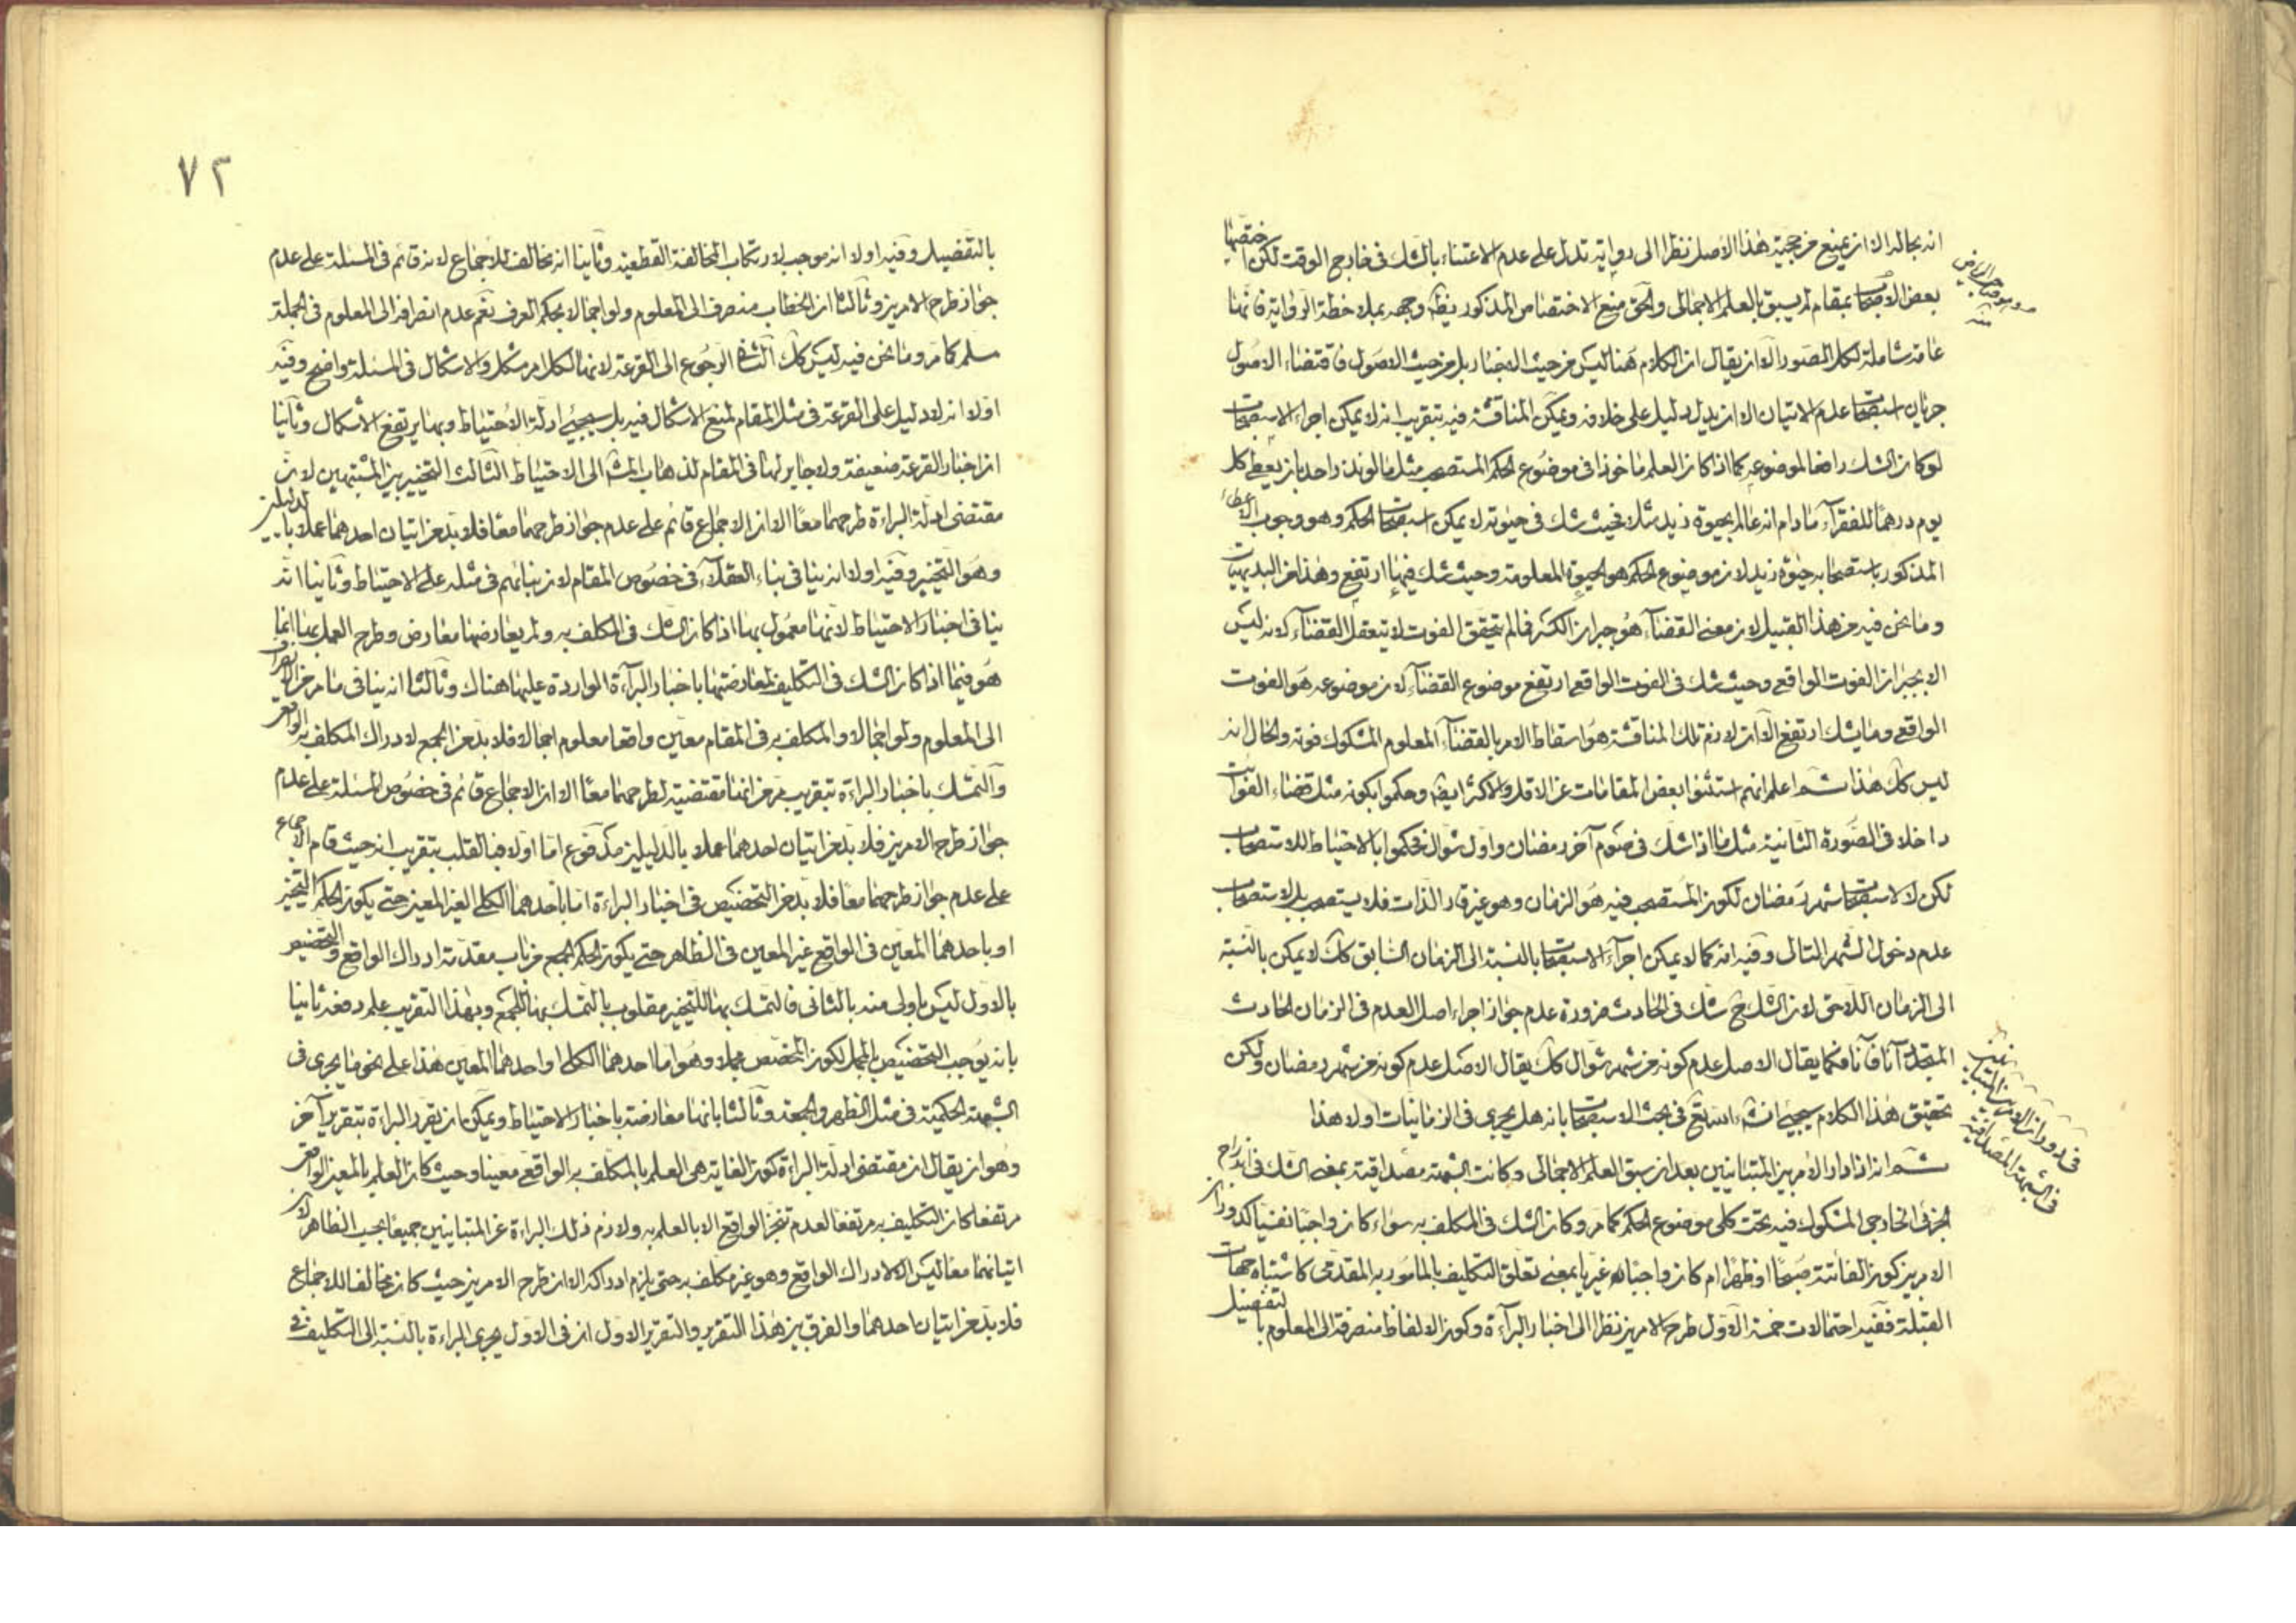 انه بحاله الا ان يمنع من حجية هذا الاصل نظرا الى رواية تدل على عدم الاعتناء بالشك فى خارج الوقت لكن اختصها
بعض الاصحاب بمقام لم يسبق بالعلم الاجمالى والحق منع الاختصاص المذكور وجهه بملاحظة الرواية فانها
عامة شاملة لكل الصور الا ان يقال ان الكلام هنا ليس من حيث الاخبار بل من حيث الاصول فاقتضاء الاصول
جريان استصحاب عدم الاتيان الا ان يدل دليل على خلافه ويمكن المناقشة فيه بتقريب انه لا يمكن اجراء الاستصحاب
لو كان الشك رافعا لموضوعه كما اذا كان العلم ماخوذا فى موضوع الحكم المستصحب مثل ما لو نذر واحد بان يعطى كل
يوم درهما للفقراء ما دام انه عالم بحيوة زيد مثلا فحيث شك فى حيوته لا يمكن استصحاب الحكم وهو وجوب الاعطاء
المذكور باستصحاب حيوة زيد لان موضوع الحكم هو الحيوة المعلومة وحيث شك فيها ارتفع وهذا من البديهيات
وما نحن فيه من هذا القبيل لان معنى القضاء هو جبران الكسر فما لم يتحقق الفوت لا يتعقل القضاء لانه ليس
الا بجبران الفوت الواقعى وحيث شك فى الفوت الواقعى ارتفع موضوع القضاء لان موضوعه هو الفوت
الواقعى وما يشك ارتفع الا ان لازم تلك المناقشة هو اسقاط الامر بالقضاء المعلوم المشكوك فوته والحال انه
ليس كك هذا ثم اعلم انهم استثنوا بعض المقامات عن الاقل والاكثر ايضا وحكموا بكونه مثل قضاء الفوائت
داخلا فى الصورة الثانية مثل ما اذا شك فى صوم آخر رمضان واول شوال فحكموا بالاحتياط للاستصحاب
لكن لا لاستصحاب شهر رمضان لكون المستصحب فيه هو الزمان وهو غير قار الذات فلا يستصحب بل لاستصحاب
عدم دخول الشهر التالى وفيه انه كما لا يمكن اجراء الاستصحاب بالنسبة الى الزمان السابق كك لا يمكن بالنسبة
الى الزمان اللاحق لان الشك ح شك فى الحادث ضرورة عدم جواز اجراء اصل العدم فى الزمان الحادث
المتجدد آنا فآنا فكما يقال الاصل عدم كونه من شهر شوال كك يقال الاصل عدم كونه من شهر رمضان ولكن
تحقيق هذا الكلام سيجئ انشاء الله تع فى بحث الاستصحاب بانه هل يجرى فى الزمانيات اولا هذا
ثم انه اذا دار الامر بين المتباينين بعد ان سبق العلم الاجمالى وكانت الشبهة مصداقية بمعنى الشك فى اندراج
الجزئى الخارجى المشكوك فيه تحت كلى موضوع الحكم كما مر وكان الشك فى المكلف به سواء كان واجبا نفسيا كدوران
الامر بين كون الفائتة صبحا او ظهرا ام كان واجبا غيريا بمعنى تعلق التكليف بالمأمور به المقدمى كاشتباه جهات
القبلة ففيه احتمالات خمسة الاول طرح الامرين نظرا الى اخبار البرآءة وكون الالفاظ منصرفة الى المعلوم بالتفصيل
فى دوران الامر بين المتباينين
فى الشبهة المصداقية
٧٢
بالتفصيل وفيه اولا انه موجب لارتكاب المخالفة القطعية وثانيا انه مخالف للاجماع لانه قائم فى المسئلة على عدم
جواز طرح الامرين وثالثا ان الخطاب منصرف الى المعلوم ولو اجمالا بحكم العرف نعم عدم انصرافه الى المعلوم فى الجملة
مسلم كما مر وما نحن فيه ليس كك الثانى الرجوع الى القرعة لانها لكل امر مشكل والاشكال فى المسئلة واضح وفيه
اولا انه لا دليل على القرعة فى مثل المقام لمنع الاشكال فيه بل سيجئ ادلة الاحتياط وبها يرتفع الاشكال وثانيا
ان اخبار القرعة ضعيفة ولا جابر لها فى المقام لذهاب المشهور الى الاحتياط الثالث التخيير بين المشتبهين لان
مقتضى ادلة البراءة طرحهما معا الا ان الاجماع قائم على عدم جواز طرحهما معا فلا بد من اتيان احدهما عملا بالدليلين
وهو التخيير وفيه اولا انه ينافى بناء العقلاء فى خصوص المقام لان بنائهم فى مثله على الاحتياط وثانيا انه
ينافى اخبار الاحتياط لانها معمول بها اذا كان الشك فى المكلف به ولم يعارضها معارض وطرح العمل بها انما
هو فيما اذا كان الشك فى التكليف لمعارضتها باخبار البرآءة الواردة عليها هناك وثالثا انه ينافى ما مر من الانصراف
الى المعلوم ولو اجمالا والمكلف به فى المقام معين واقعا معلوم اجمالا فلا بد من الجمع لادراك المكلف به الواقعى
والتمسك باخبار البراءة بتقريب مر من انها مقتضية لطرحهما معا الا ان الاجماع قائم فى خصوص المسئلة على عدم
جواز طرح الامرين فلا بد من اتيان احدهما عملا بالدليلين مدفوع اما اولا فبالقلب بتقريب انه حيث قام الاجماع
على عدم جواز طرحهما معا فلا بد من التخصيص فى اخبار البراءة اما باحدهما الكلى الغير المعين حتى يكون الحكم التخيير
او باحدهما المعين فى الواقع غير المعين فى الظاهر حتى يكون الحكم الجمع من باب مقدمة ادراك الواقع والتخصيص
بالاول ليس باولى منه بالثانى فالتمسك بها للتخيير مقلوب بالتمسك بها للجمع وبهذا التقريب علم دفعه ثانيا
بانه يوجب التخصيص بالمجمل لكون المخصص مجملا وهو اما احدهما الكلى او احدهما المعين هذا على نحو ما يجرى فى
الشبهة الحكمية فى مثل الظهر والجمعة وثالثا بانها معارضة باخبار الاحتياط ويمكن ان يقرر البراءة بتقرير آخر
وهو ان يقال ان مقتضى ادلة البراءة كون الغاية هى العلم بالمكلف به الواقعى معينا وحيث كان العلم بالمعين الواقعى
مرتفعا كان التكليف به مرتفعا لعدم تنجز الواقع الا بالعلم به ولازم ذلك البراءة عن المتباينين جميعا بحسب الظاهر لان
اتيانهما معا ليس الا لادراك الواقع وهو غير مكلف به حتى يلزم ادراكه الا ان طرح الامرين حيث كان مخالفا للاجماع
فلا بد من اتيان احدهما والفرق بين هذا التقرير والتقرير الاول ان فى الاول يجرى البراءة بالنسبة الى التكليف فى